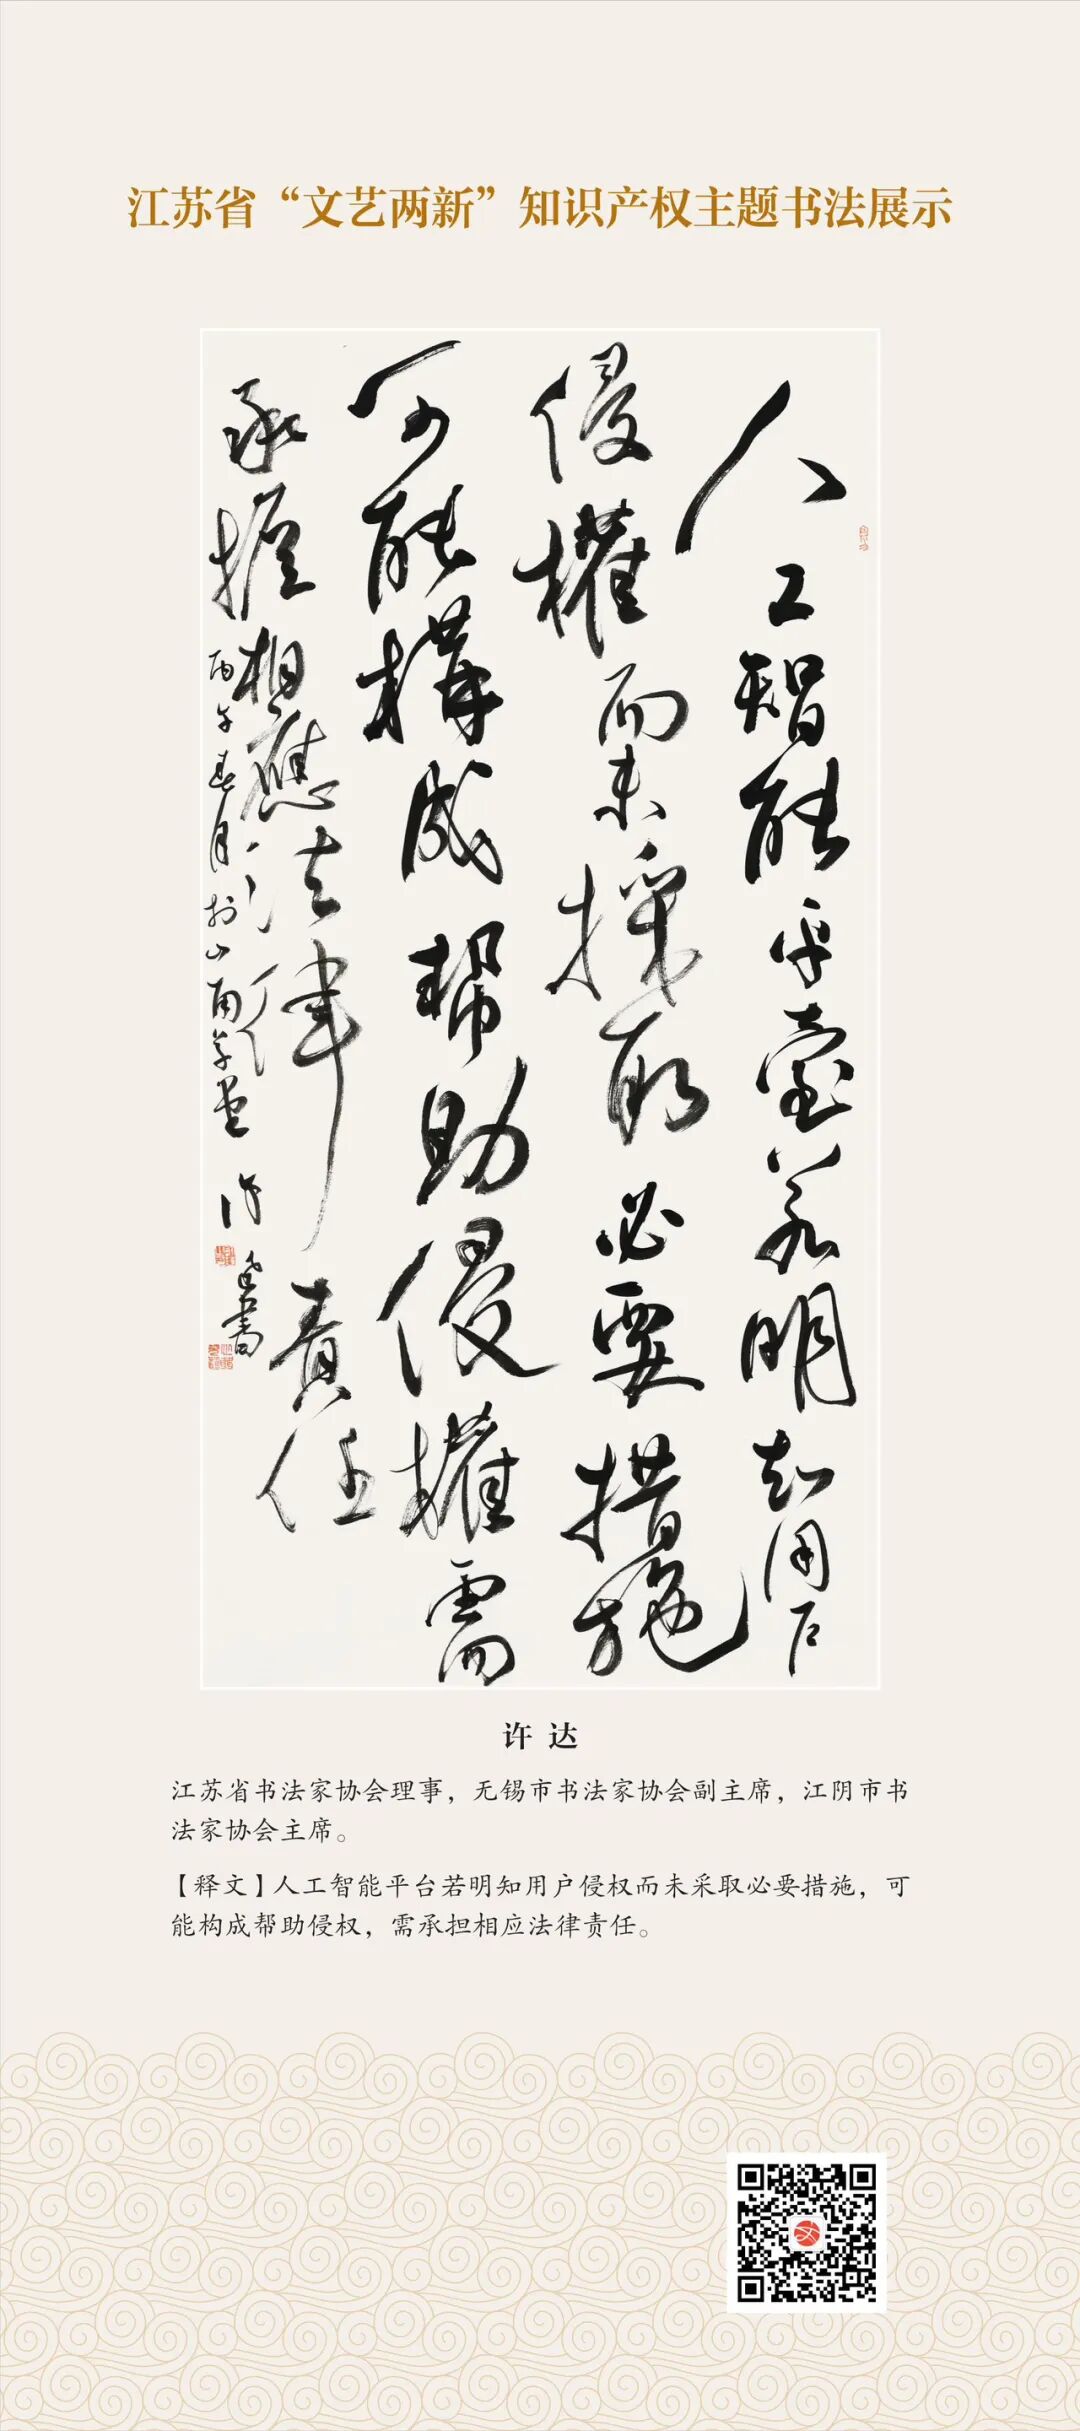 江苏省“文艺两新”知识产权主题书法展示
人工智能平臺若明知用户
侵權而未採取必要措施
可能構成帮助侵權需
承擔相應法律責任
丙午春月於山南草堂 许達書
许 达
江苏省书法家协会理事，无锡市书法家协会副主席，江阴市书
法家协会主席。
【释文】人工智能平台若明知用户侵权而未采取必要措施，可
能构成帮助侵权，需承担相应法律责任。